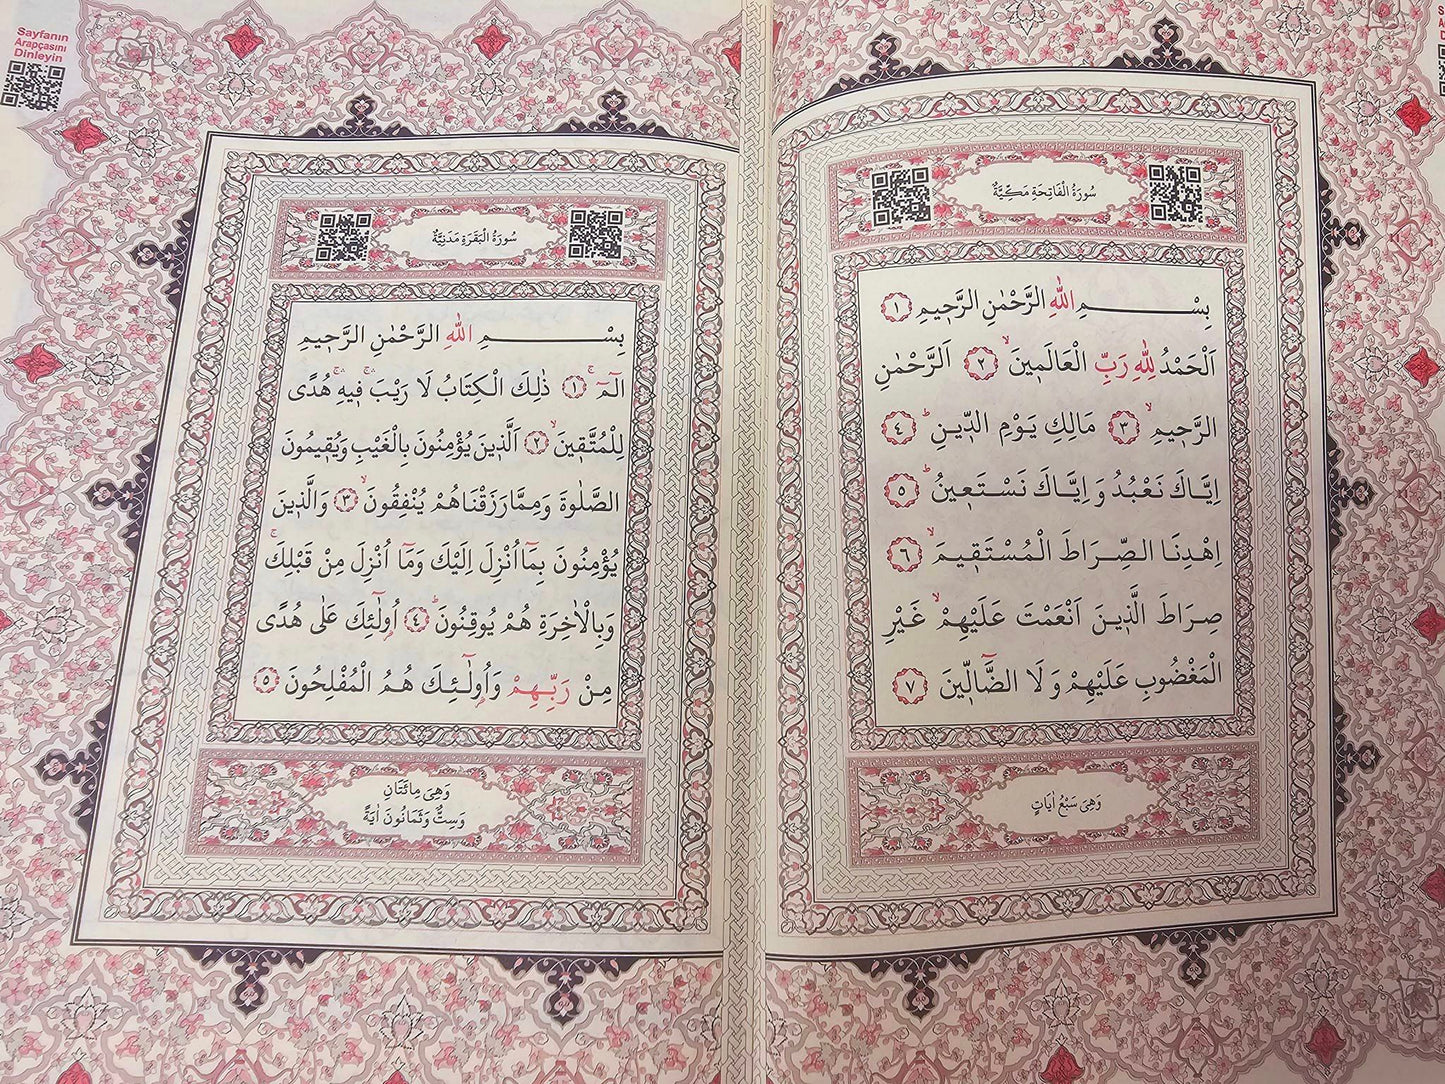 سُورَةُ الْفَاتِحَةِ مَكِّيَّةٌ
بِسْــــــمِ اللّٰهِ الرَّحْمٰنِ الرَّح۪يمِ ﴿١﴾
اَلْحَمْدُ لِلّٰهِ رَبِّ الْعَالَم۪ينَۙ ﴿٢﴾ اَلرَّحْمٰنِ
الرَّح۪يمِۙ ﴿٣﴾ مَالِكِ يَوْمِ الدّ۪ينِۜ ﴿٤﴾
اِيَّاكَ نَعْبُدُ وَاِيَّاكَ نَسْتَع۪ينُۜ ﴿٥﴾
اِهْدِنَا الصِّرَاطَ الْمُسْتَق۪يمَۙ ﴿٦﴾
صِرَاطَ الَّذ۪ينَ اَنْعَمْتَ عَلَيْهِمْۙ غَيْرِ
الْمَغْضُوبِ عَلَيْهِمْ وَلَا الضَّٓالّ۪ينَ ﴿٧﴾
وَهِيَ سَبْعُ اٰيَاتٍ
Sayfanın
Arapçasını
Dinleyin
سُورَةُ الْبَقَرَةِ مَدَنِيَّةٌ
بِسْــــــمِ اللّٰهِ الرَّحْمٰنِ الرَّح۪يمِ
الٓمٓۚ ﴿١﴾ ذٰلِكَ الْكِتَابُ لَا رَيْبَۚۛ ف۪يهِۚۛ هُدًى
لِلْمُتَّق۪ينَۙ ﴿٢﴾ اَلَّذ۪ينَ يُؤْمِنُونَ بِالْغَيْبِ وَيُق۪يمُونَ
الصَّلٰوةَ وَمِمَّا رَزَقْنَاهُمْ يُنْفِقُونَۙ ﴿٣﴾ وَالَّذ۪ينَ
يُؤْمِنُونَ بِمَٓا اُنْزِلَ اِلَيْكَ وَمَٓا اُنْزِلَ مِنْ قَبْلِكَۚ
وَبِالْاٰخِرَةِ هُمْ يُوقِنُونَۜ ﴿٤﴾ اُو۬لٰٓئِكَ عَلٰى هُدًى
مِنْ رَبِّهِمْ وَاُو۬لٰٓئِكَ هُمُ الْمُفْلِحُونَ ﴿٥﴾
وَهِيَ مِائَتَانِ
وَسِتٌّ وَثَمَانُونَ اٰيَةً